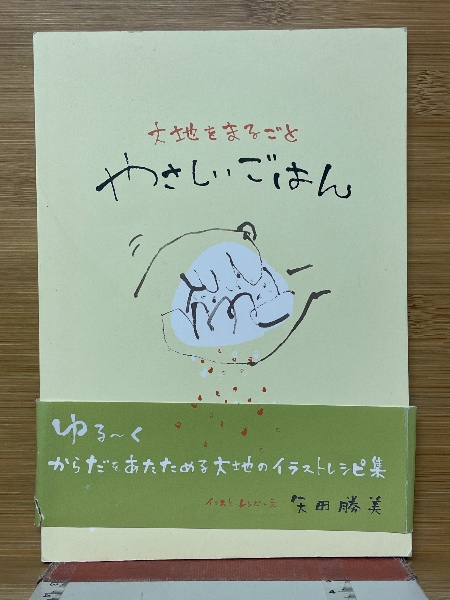 大地をまるごと
やさしいごはん
ゆる〜く
からだをあたためる大地のイラストレシピ集
矢田勝美